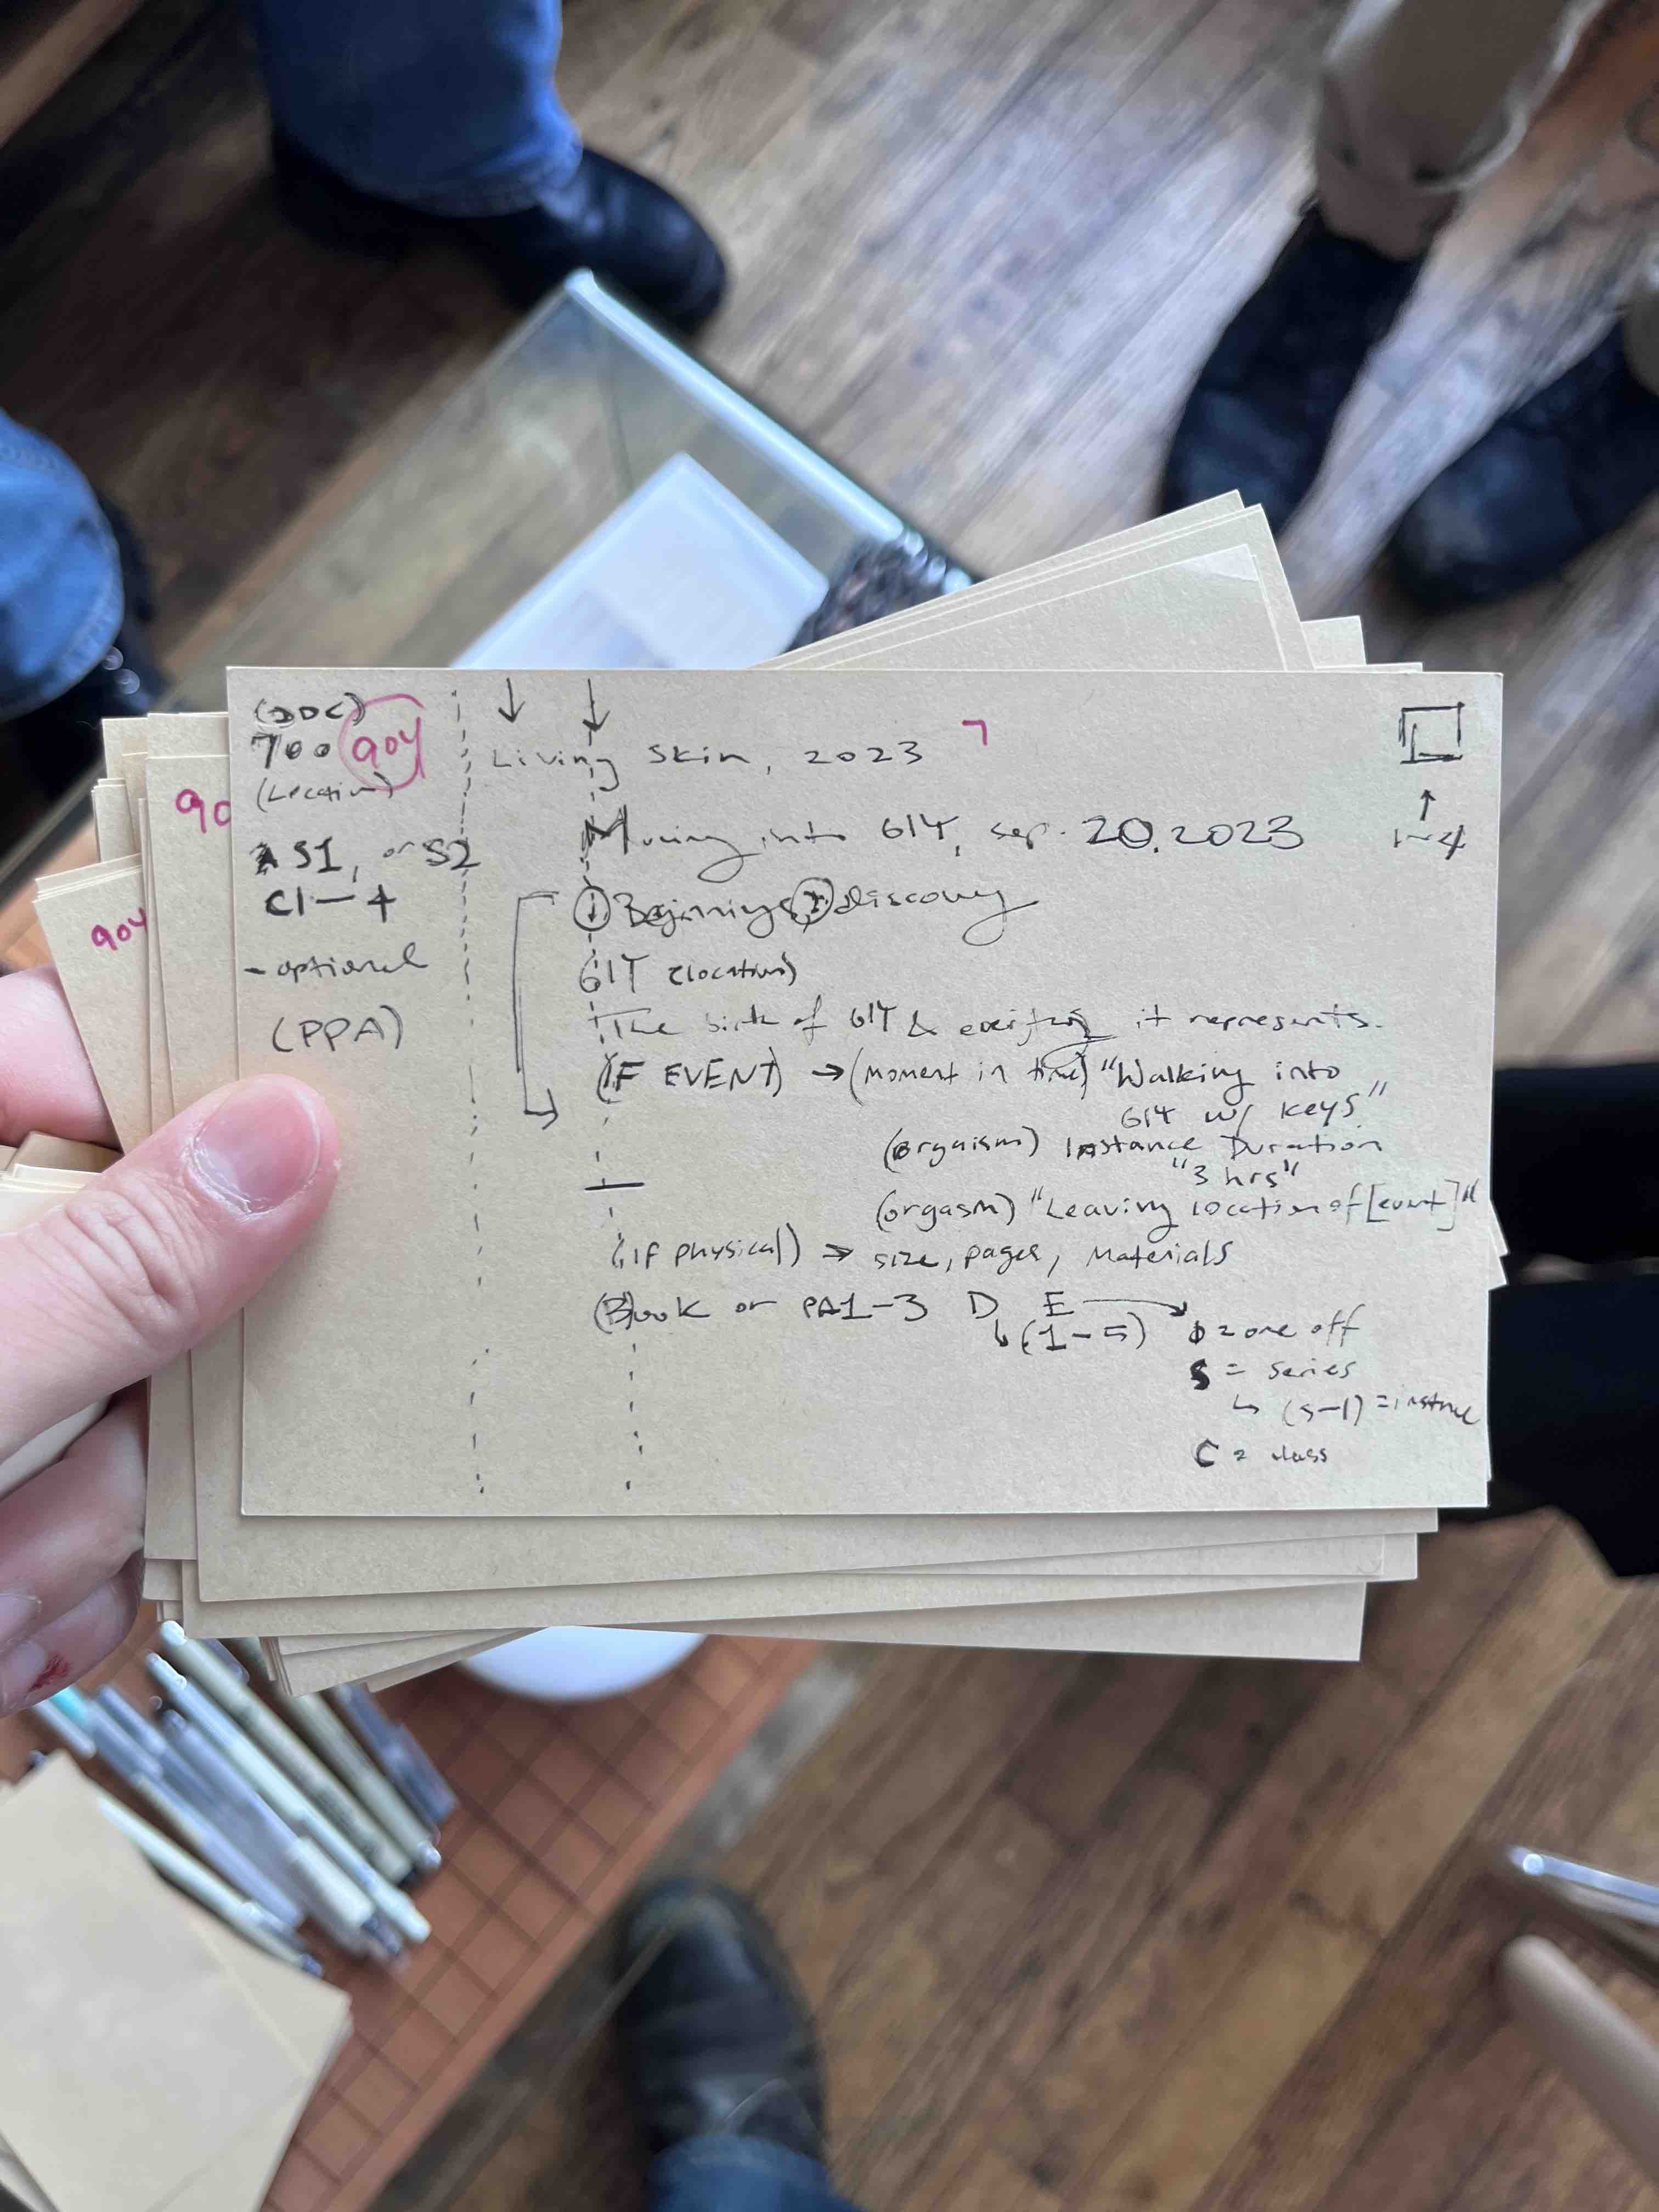 (DDC)
700 904
(Location)
S1, or S2
C1-4
- optional
(PPA)
Living Skin, 2023
7
1-4
Moving into 614, sep. 20, 2023
Beginnings, discovry
614 (location)
The birth of 614 & everything it represents.
(IF EVENT) → (Moment in time) "Walking into
614 w/ keys"
(orgaism) Instance Duration
"3 hrs"
(orgasm) "Leaving location of [event]"
(if physical) → size, pages, Materials
(Book or PA1-3 D E
(1-5) = one off
S = series
↳ (S-1) =
C = class
904
904